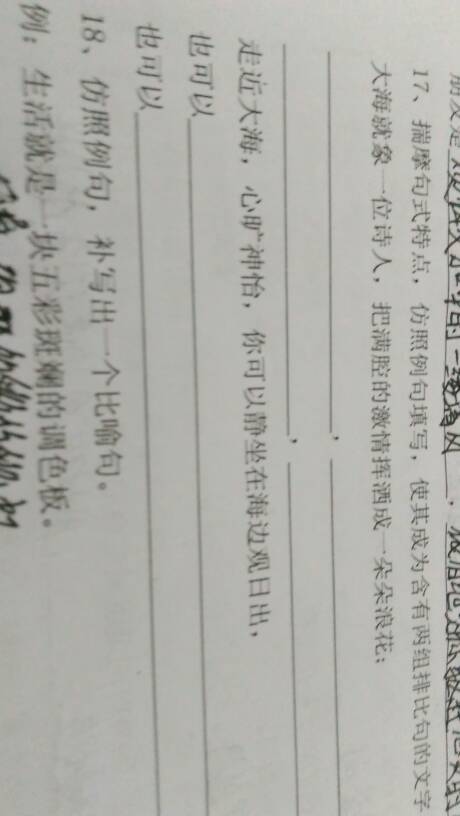 朋友是
17、揣摩句式特点，仿照例句填写，使其成为含有两组排比句的文字
大海就象一位诗人，把满腔的激情挥洒成一朵朵浪花；
，
，
走近大海，心旷神怡，你可以静坐在海边观日出，
也可以
也可以
18、仿照例句，补写出一个比喻句。
例：生活就是一块五彩斑斓的调色板。